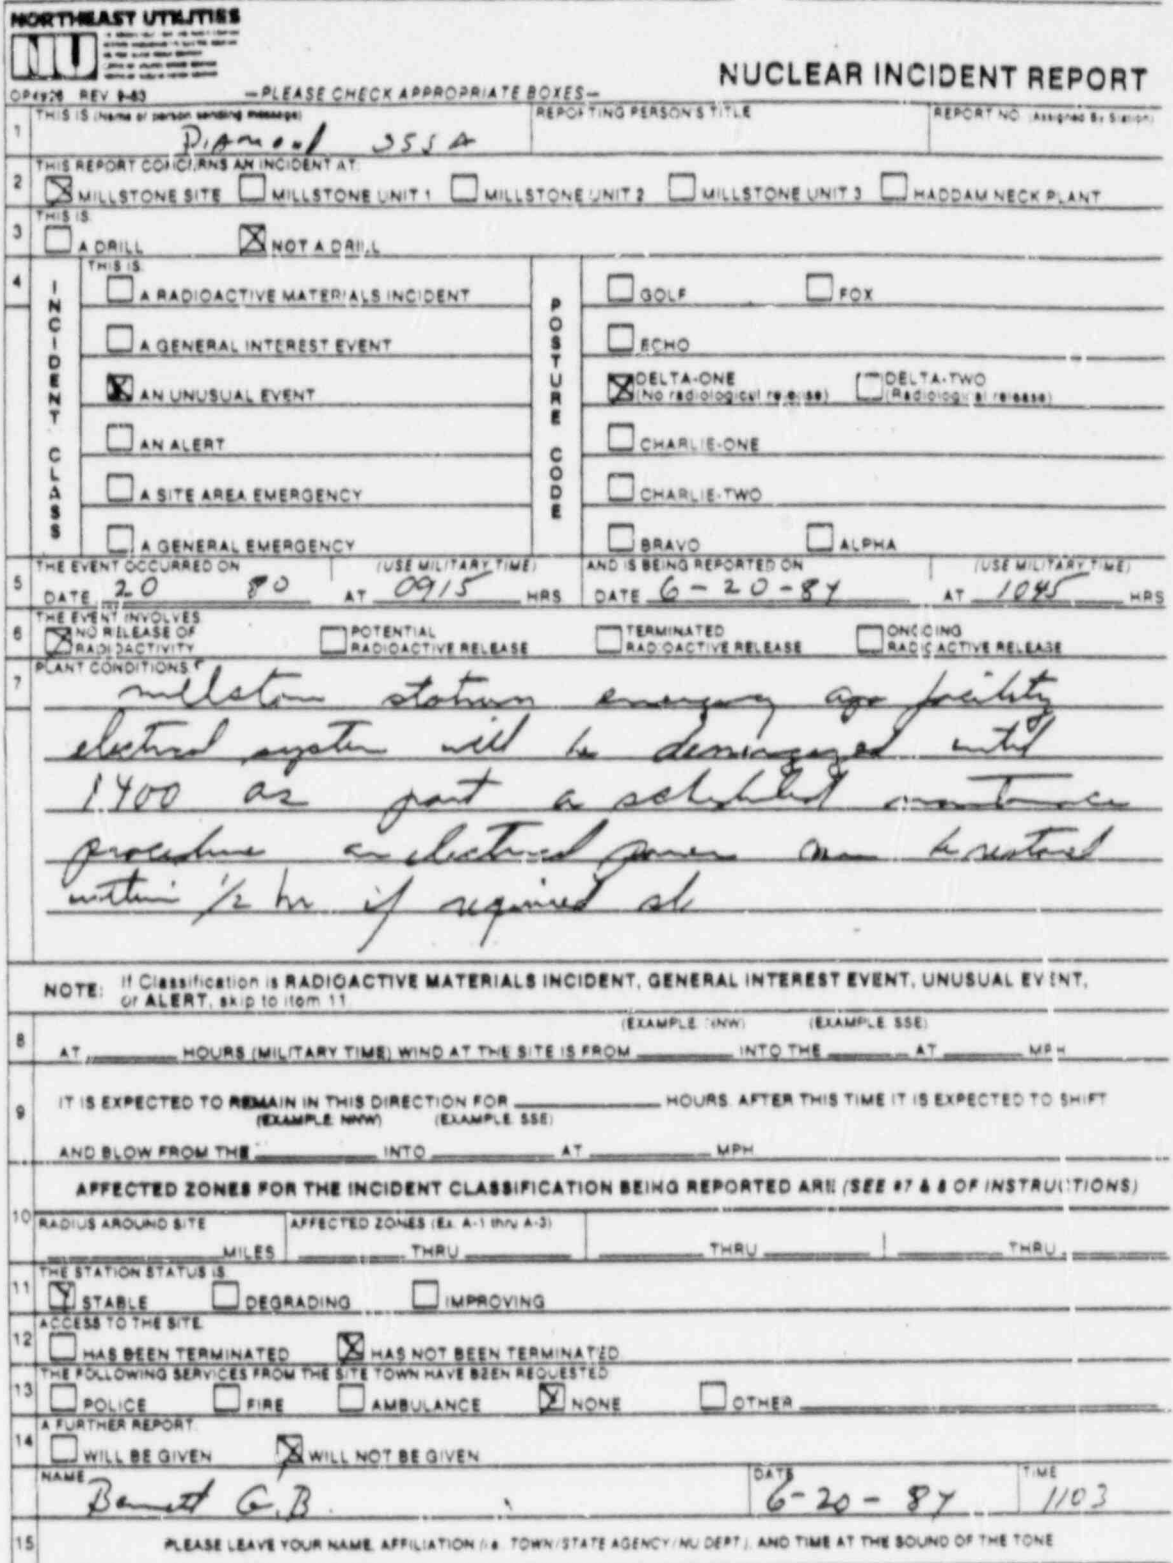 NORTHEAST UTILITIES
NU
OP4926 REV 9-83
—PLEASE CHECK APPROPRIATE BOXES—
NUCLEAR INCIDENT REPORT
1 THIS IS (Name of person sending message) REPORTING PERSON'S TITLE REPORT NO. (Assigned By Station)
Diamond
THIS REPORT CONCERNS AN INCIDENT AT:
2 MILLSTONE SITE MILLSTONE UNIT 1 MILLSTONE UNIT 2 MILLSTONE UNIT 3 HADDAM NECK PLANT
THIS IS:
3 A DRILL NOT A DRILL
4 INCIDENT CLASS THIS IS: POSTURE CODE
A RADIOACTIVE MATERIALS INCIDENT GOLF FOX
A GENERAL INTEREST EVENT ECHO
AN UNUSUAL EVENT DELTA-ONE (No radiological release) DELTA-TWO (Radiological release)
AN ALERT CHARLIE-ONE
A SITE AREA EMERGENCY CHARLIE-TWO
A GENERAL EMERGENCY BRAVO ALPHA
THE EVENT OCCURRED ON (USE MILITARY TIME) AND IS BEING REPORTED ON (USE MILITARY TIME)
5 DATE 20 80 AT 0915 HRS DATE 6-20-84 AT 1045 HRS
THE EVENT INVOLVES
6 NO RELEASE OF RADIOACTIVITY POTENTIAL RADIOACTIVE RELEASE TERMINATED RADIOACTIVE RELEASE ONGOING RADIOACTIVE RELEASE
7 PLANT CONDITIONS
station emergency facility
electrical system will be until
1400 as part a scheduled maintenance
procedure electrical power can be restored
within 1/2 hr if required
NOTE: If Classification is RADIOACTIVE MATERIALS INCIDENT, GENERAL INTEREST EVENT, UNUSUAL EVENT,
or ALERT, skip to item 11.
(EXAMPLE NNW) (EXAMPLE SSE)
8 AT HOURS (MILITARY TIME) WIND AT THE SITE IS FROM INTO THE AT MPH
9 IT IS EXPECTED TO REMAIN IN THIS DIRECTION FOR HOURS. AFTER THIS TIME IT IS EXPECTED TO SHIFT
(EXAMPLE NNW) (EXAMPLE SSE)
AND BLOW FROM THE INTO AT MPH
AFFECTED ZONES FOR THE INCIDENT CLASSIFICATION BEING REPORTED ARE (SEE #7 & 8 OF INSTRUCTIONS)
10 RADIUS AROUND SITE AFFECTED ZONES (Ex. A-1 thru A-3)
MILES THRU THRU THRU
THE STATION STATUS IS
11 STABLE DEGRADING IMPROVING
ACCESS TO THE SITE
12 HAS BEEN TERMINATED HAS NOT BEEN TERMINATED
THE FOLLOWING SERVICES FROM THE SITE TOWN HAVE BEEN REQUESTED
13 POLICE FIRE AMBULANCE NONE OTHER
A FURTHER REPORT:
14 WILL BE GIVEN WILL NOT BE GIVEN
NAME DATE TIME
Bennett G.B. 6-20-84 1103
15 PLEASE LEAVE YOUR NAME, AFFILIATION (i.e. TOWN/STATE AGENCY/NU DEPT.), AND TIME AT THE SOUND OF THE TONE